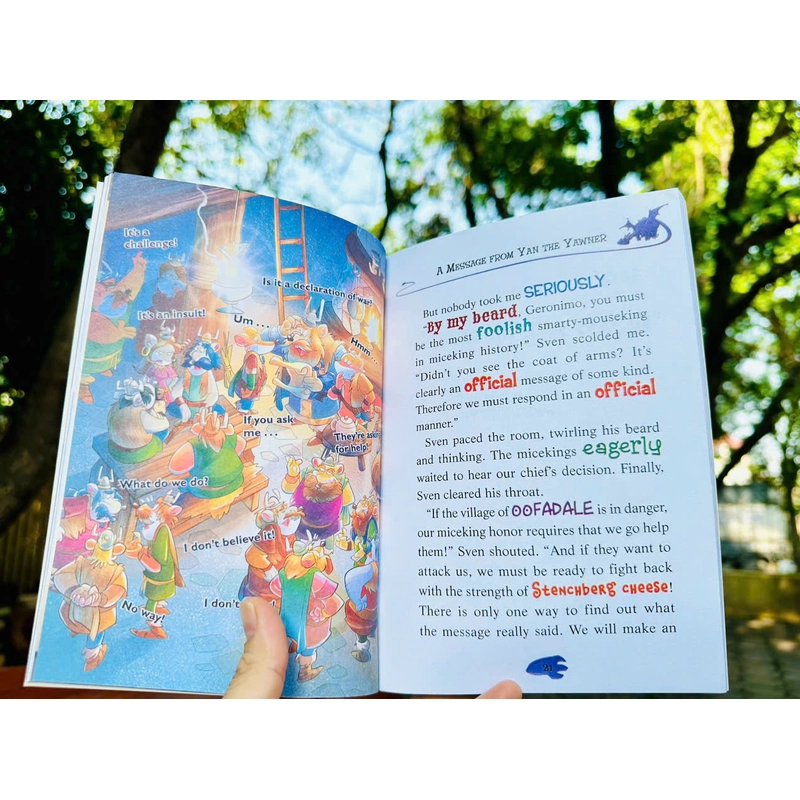 It's a
challenge!
Is it a declaration of war?
It's an insult!
Um ...
Hmm ...
If you ask
me ...
They're asking
for help!
What do we do?
I don't believe it!
No way!
I don't
A Message from Yan the Yawner
But nobody took me SERIOUSLY.
"By my beard, Geronimo, you must
be the most foolish smarty-mouseking
in miceking history!" Sven scolded me.
"Didn't you see the coat of arms? It's
clearly an official message of some kind.
Therefore we must respond in an official
manner."
Sven paced the room, twirling his beard
and thinking. The micekings eagerly
waited to hear our chief's decision. Finally,
Sven cleared his throat.
"If the village of OOFADALE is in danger,
our miceking honor requires that we go help
them!" Sven shouted. "And if they want to
attack us, we must be ready to fight back
with the strength of Stenchberg cheese!
There is only one way to find out what
the message really said. We will make an